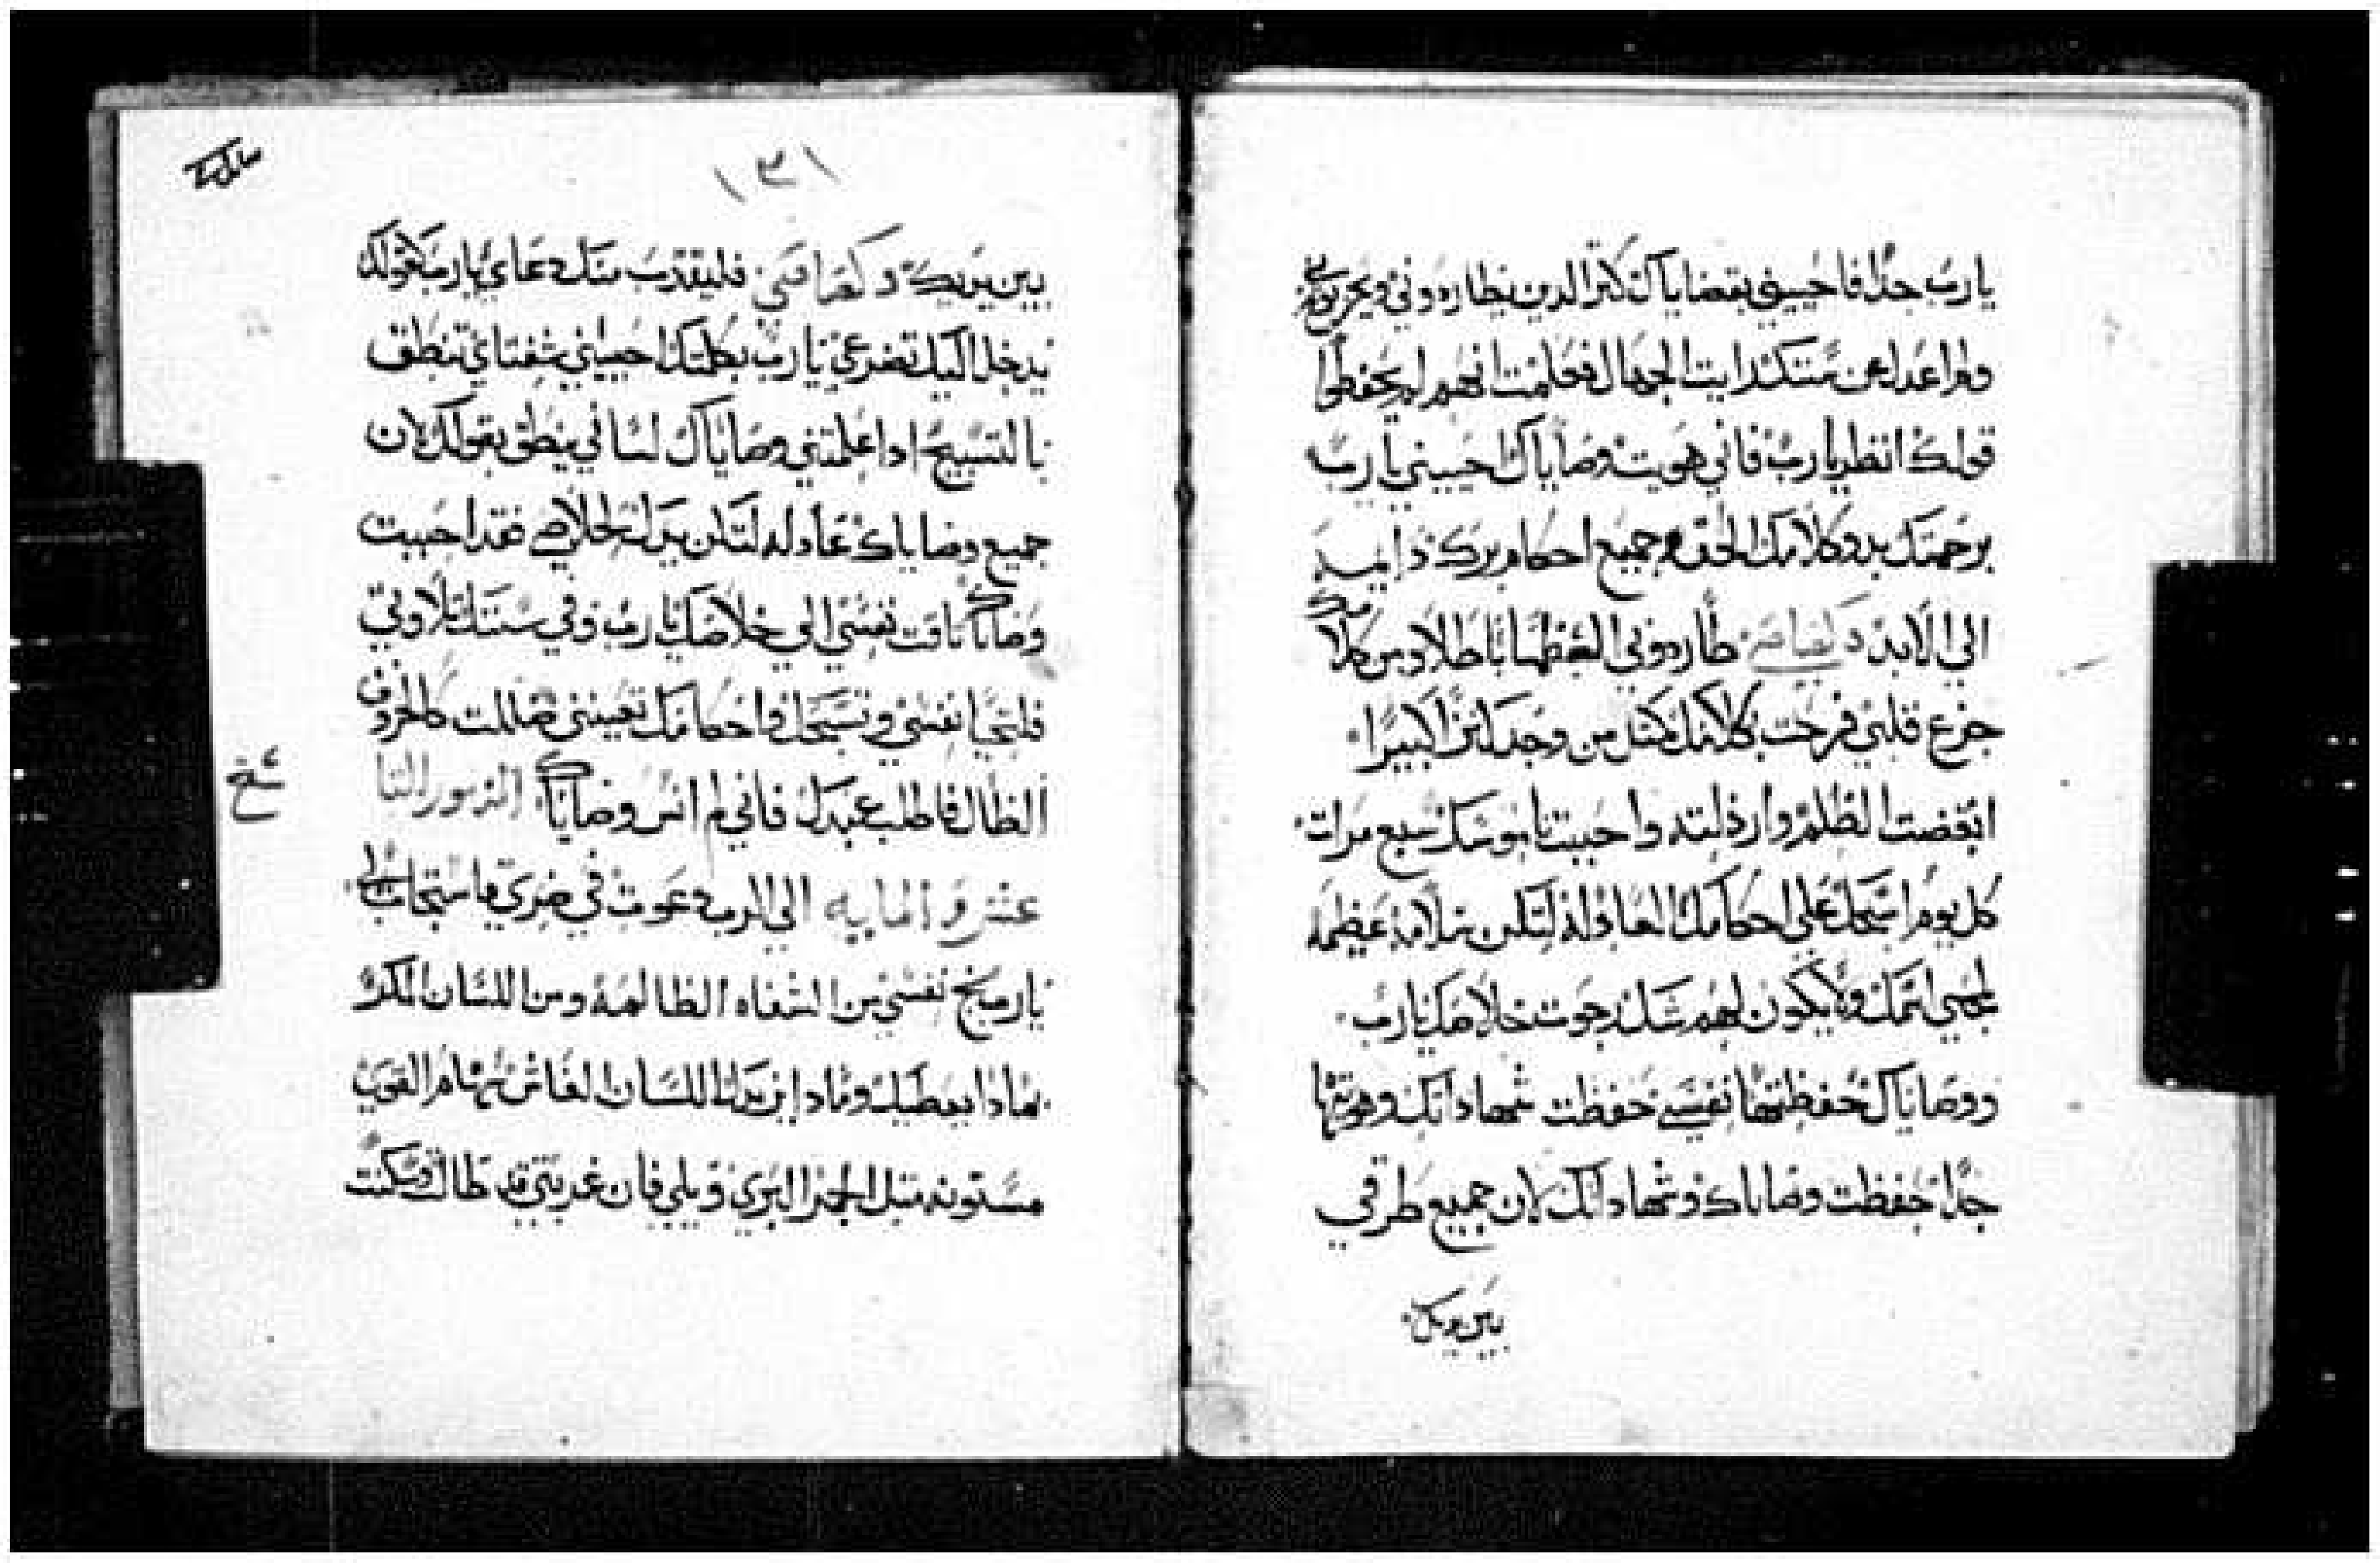 يارب جدا فاحييني بقضاياك كثر الدين يطاردوني ويحزنوني
وانا عدا عن سنتك رايت الجهال فعلمت انهم لم يحفظوا
قولك انظر يارب فاني هويت وصاياك احييني يا رب
برحمتك بدو كلامك الحق وجميع احكام برك دايمه
الي الابد طاردوني العظما باطلا ومن كلامك
جزع قلبي فرحت بكلامك كمثل من وجد كنزا كبيرا
ابغضت الظلم وارذلته واحببت ناموسك سبع مرات
كل يوم اسبحك علي احكامك العادله لتكن سلامه عظيمه
لمحبي اسمك ولا يكون لهم شك رجوت خلاصك يا رب
ووصاياك حفظتها نفسي حفظت شهاداتك وهويتها
جدا حفظت وصاياك وشهاداتك لان جميع طرقي
بين يديك
١٣١
بين يديك فليقترب منك دعاي يارب كقولك
يدخل اليك تضرعي يا رب بكلمتك احييني شفتاي تنطق
بالتسبيح ادا علمتني وصاياك لساني ينطق بقولك لان
جميع وصاياك عادله لتكن يدك لخلاصي فقد احببت
وصاياك تاقت نفسي الي خلاصك يارب وفي سنتك تلاوتي
فلتحيا نفسي وتسبحك واحكامك تعينني ضللت كالخروف
الضال فاطلب عبدك فاني لم انس وصاياك المزمور التا
عشر و المايه الي الرب دعوت في ضري فاستجاب لي
يارب نج نفسي من الشفاه الظالمه ومن اللسان المكر
مادا يعطيك ومادا يزيدك اللسان الغاش سهام القوي
مسنونه مثل الجمر البري ويلي فان غربتي قد طالت وسكنت